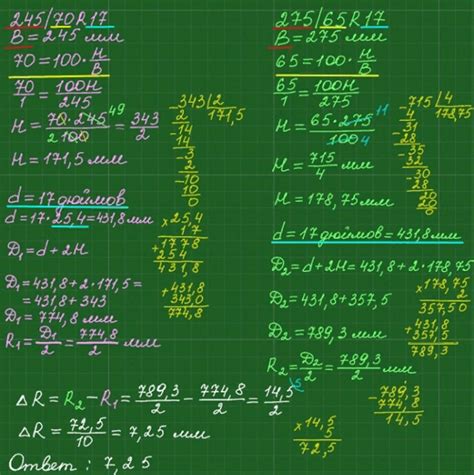 245/70 R 17
B = 245 мм
70 = 100 · H/B
70/1 = 100H/245
H = 70 · 245 49 / 2 100 = 343/2
H = 171,5 мм
343 | 2
2 171,5
14
14
3
2
10
10
0
d = 17 дюймов
d = 17 · 25,4 = 431,8 мм
× 25,4
17
+ 1778
254
431,8
D₁ = d + 2H
D₁ = 431,8 + 2 · 171,5 =
= 431,8 + 343
D₁ = 774,8 мм
+ 431,8
343,0
774,8
R₁ = D₁/2 = 774,8/2
275/65 R 17
B = 275 мм
65 = 100 · H/B
65/1 = 100H/275
H = 65 · 275 11 / 100 4
H = 715/4 мм
H = 178,75 мм
715 | 4
4 178,75
31
28
35
32
30
28
20
20
0
d = 17 дюймов = 431,8 мм
D₂ = d + 2H = 431,8 + 2 · 178,75
D₂ = 431,8 + 357,5
× 178,75
2
357,50
D₂ = 789,3 мм
+ 431,8
357,5
789,3
R₂ = D₂/2 = 789,3/2
△R = R₂ − R₁ = 789,3/2 − 774,8/2 = 14,5/2 \5
− 789,3
774,8
14,5
△R = 72,5/10 = 7,25 мм
× 14,5
5
72,5
Ответ : 7,25